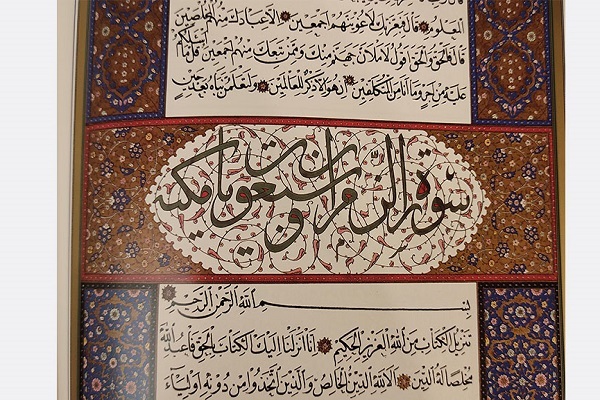 المعلوم قال فبعزتك لاغوينهم اجمعين الا عبادك منهم المخلصين
قال فالحق والحق اقول لاملان جهنم منك وممن تبعك منهم اجمعين قل ما اسئلكم
عليه من اجر وما انا من المتكلفين ان هو الا ذكر للعالمين ولتعلمن نباه بعد حين
سورة الزمر وسبعون مكية
بسم الله الرحمن الرحيم
تنزيل الكتاب من الله العزيز الحكيم انا انزلنا اليك الكتاب بالحق فاعبد الله
مخلصا له الدين الا لله الدين الخالص والذين اتخذوا من دونه اولياء